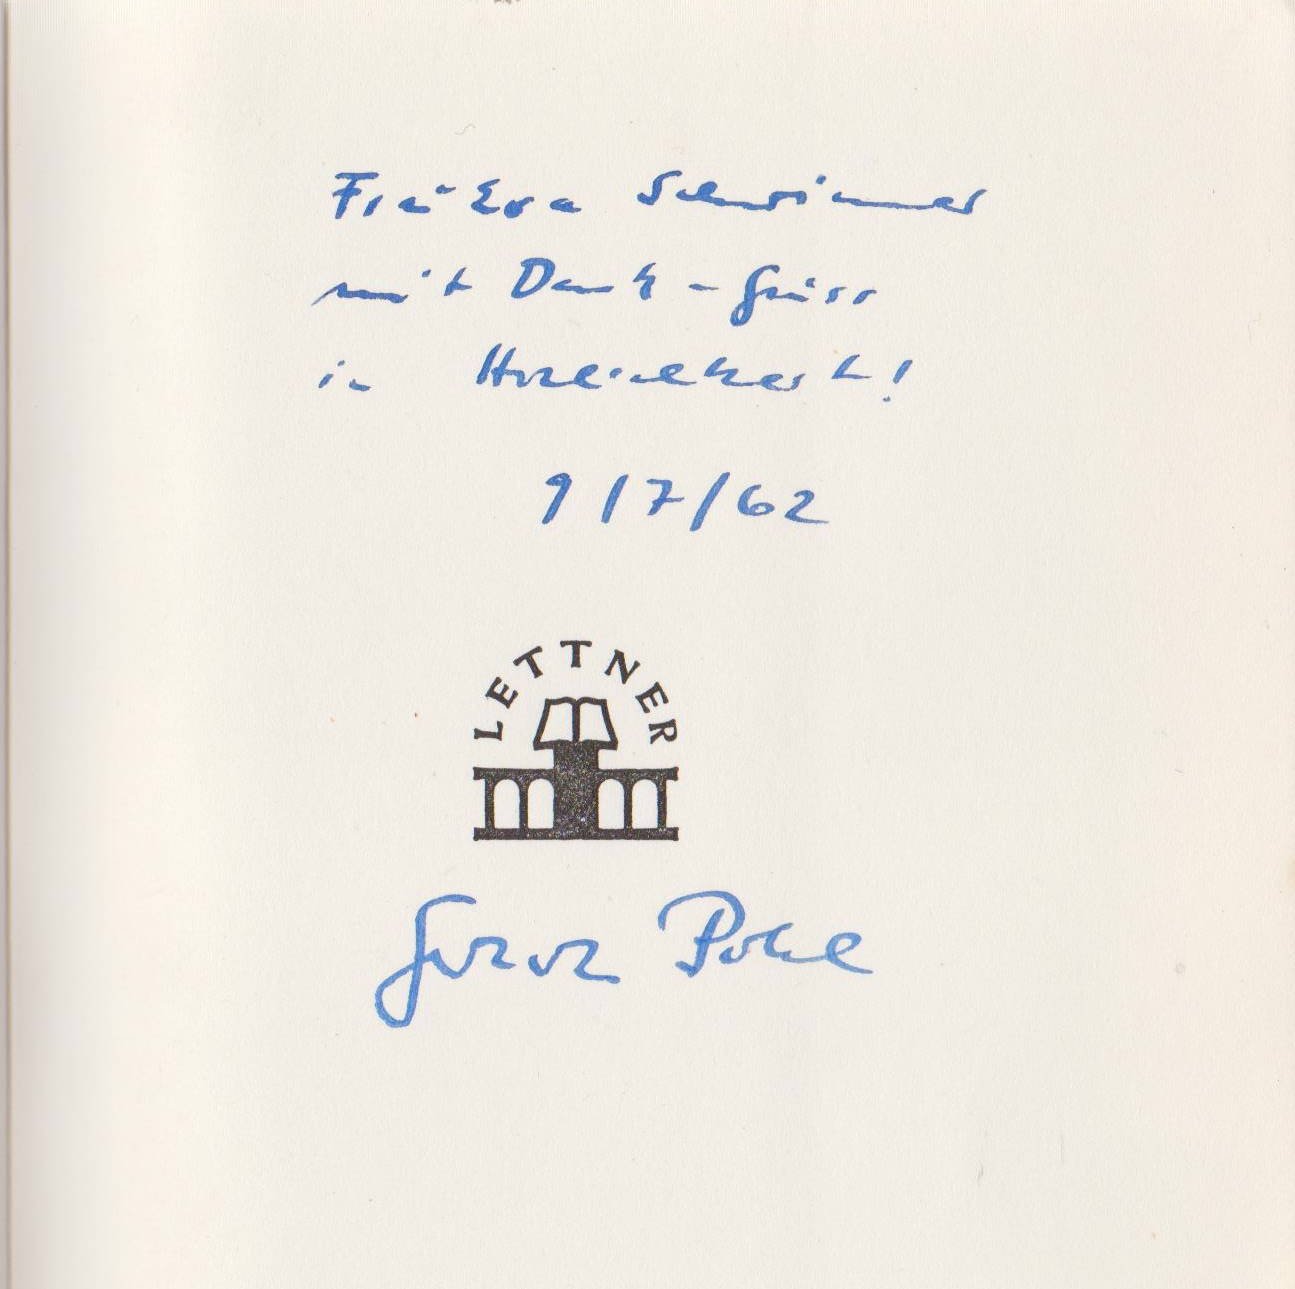 Frau Eva Schwimmer
mit Dank-Gruss
in Herzlichkeit!
9/7/62
LETTNER
Gerhard Pohl